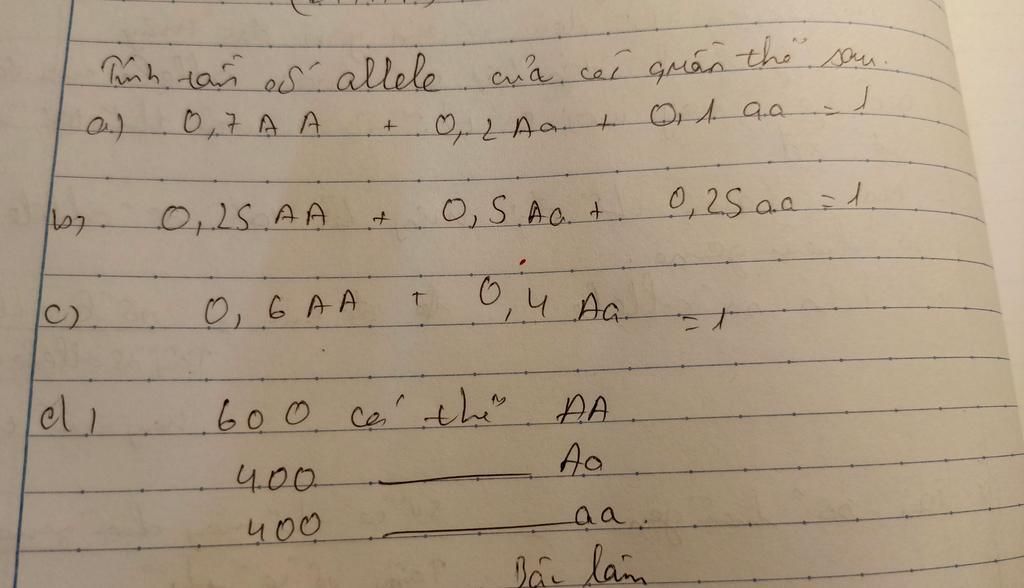 Tính tần số allele của các quần thể sau.
a) 0,7 AA + 0,2 Aa + 0,1 aa = 1
b) 0,25 AA + 0,5 Aa + 0,25 aa = 1
c) 0,6 AA + 0,4 Aa = 1
d) 600 cá thể AA
400 ——— Aa
400 ——— aa.
Bài làm